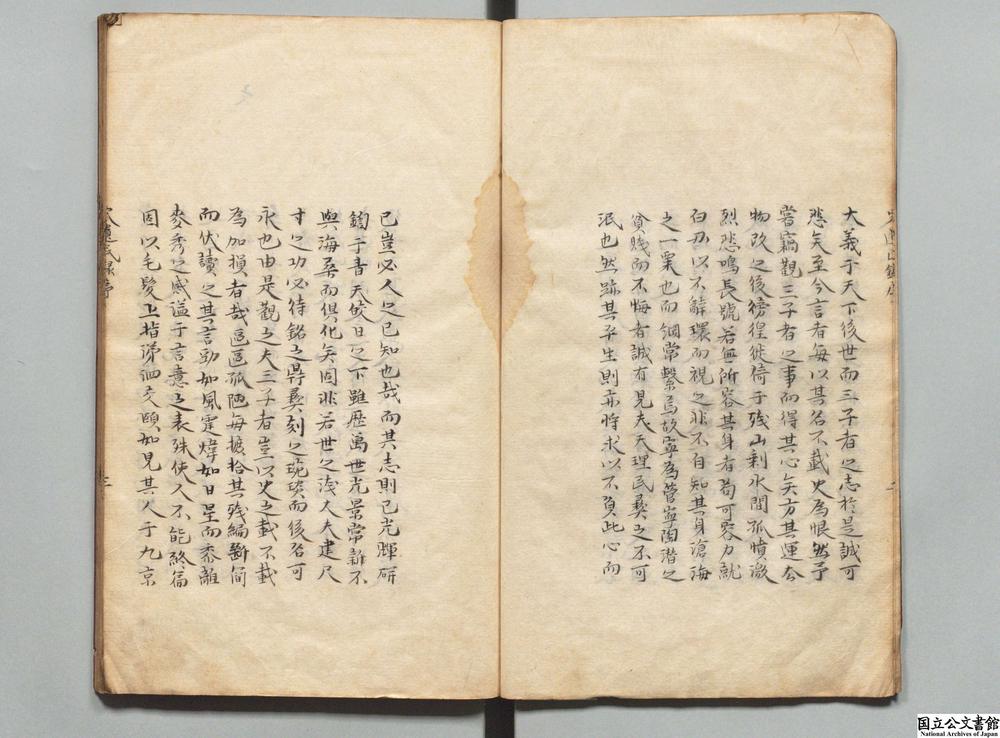 大義于天下後世而三子者之志於是誠可
悲矣至今言者每以其名不載史為恨然予
嘗竊觀三子者之事而得其心矣方其運去
物改之後徬徨徙倚于残山剰水間孤憤激
烈悲鳴長號若無所容其身者苟可容力就
白刃以不辭環而視之非不自知其身滄海
之一粟也而綱常繫焉故寧為管寧陶潜之
貧賤而不悔者誠有見夫天理民彝之不可
泯也然跡其平生則亦将求以不負此心而
已豈必人之已知也哉而其志則已光暉研
鍧于青天皦日之下雖歴萬世光景常新不
與海桑而俱化矣固非若世之浅人夫建尺
寸之功必待銘之鼎彝刻之琬琰而後為可
永也由是觀之夫三子者豈以史之載不載
為加損者哉區區孤陋每摭拾其残編斷簡
而伏讀之其言勁如風霆煒如日星而黍離
麥秀之感溢于言意之表殊使人不能終篇
固以毛髪上指涕泗交頤如見其人于九京
三
国立公文書館
National Archives of Japan